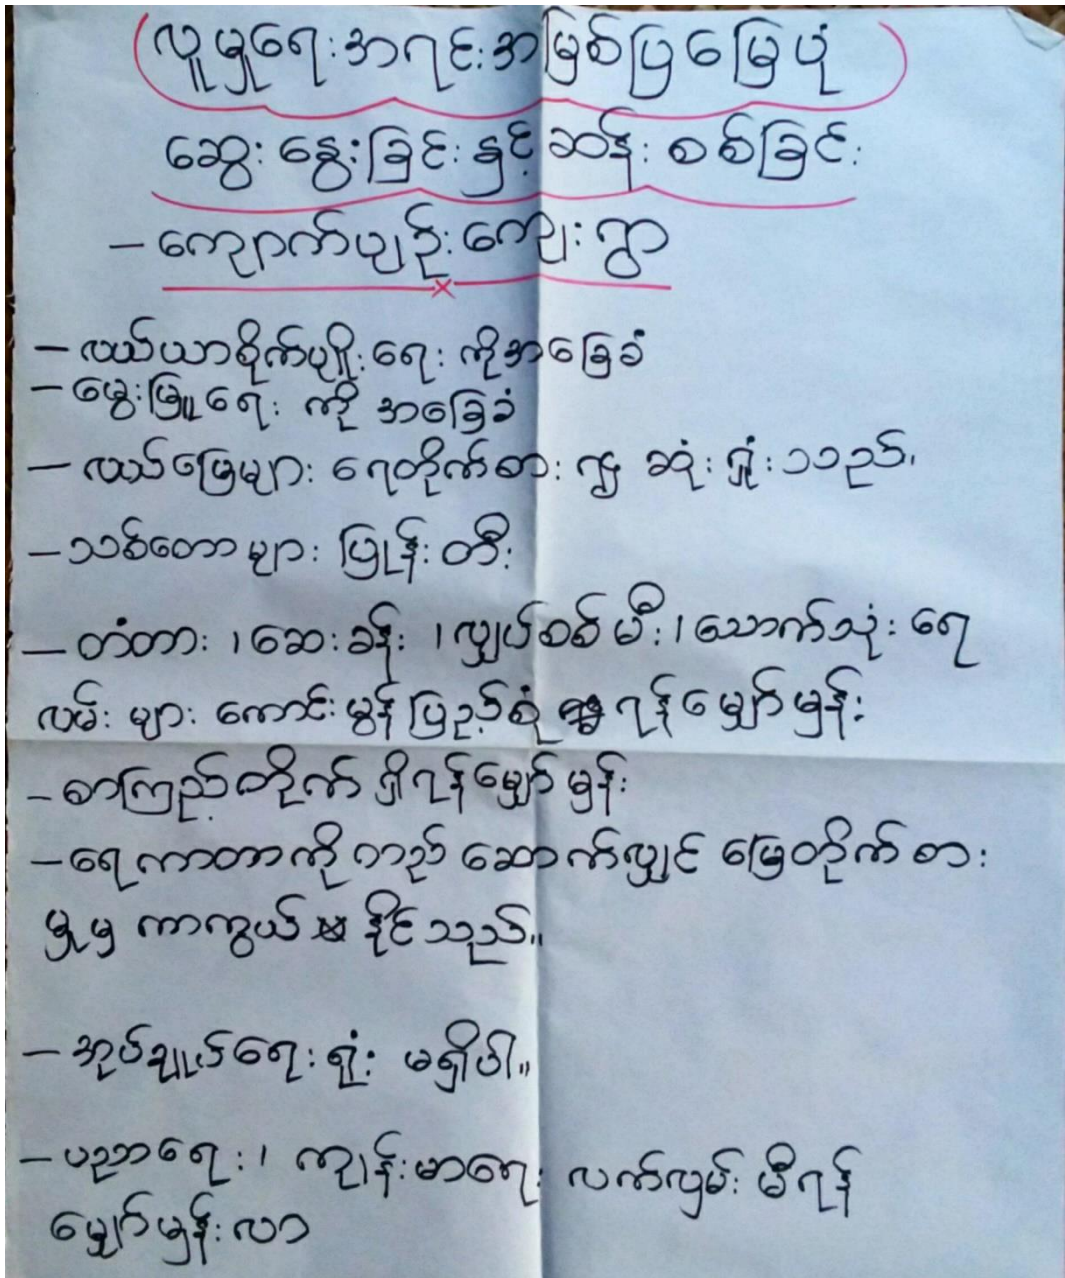 လူမှုရေးအရင်းအမြစ်ပြမြေပုံ
ဆွေးနွေးခြင်းနှင့်ဆန်းစစ်ခြင်း
- ကျောက်ပျဉ်းကျေးရွာ
- လယ်ယာစိုက်ပျိုးရေးကိုအခြေခံ
- မွေးမြူရေးကို အခြေခံ
- လယ်မြေများ ရေတိုက်စား၍ ဆုံးရှုံးသည်။
- သစ်တောများ ပြုန်းတီး
- တံတား ၊ ဆေးခန်း ၊ လျှပ်စစ်မီး ၊ သောက်သုံးရေ
လမ်းများ ကောင်းမွန်ပြည့်စုံ ရန်မျှော်မှန်း
- စာကြည့်တိုက် ရှိရန်မျှော်မှန်း
- ရေကာတာကို တည်ဆောက်လျှင် မြေတိုက်စား
မှုမှ ကာကွယ် နိုင်သည်။
- အုပ်ချုပ်ရေးရုံး မရှိပါ။
- ပညာရေး ၊ ကျန်းမာရေး လက်လှမ်းမီရန်
မျှော်မှန်းလာ